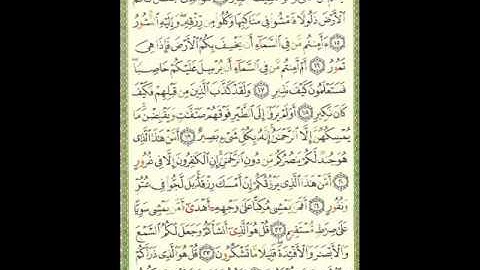 ٱلْأَرْضَ ذَلُولًا فَٱمْشُوا۟ فِى مَنَاكِبِهَا وَكُلُوا۟ مِن رِّزْقِهِۦ ۖ وَإِلَيْهِ ٱلنُّشُورُ
١٥ ءَأَمِنتُم مَّن فِى ٱلسَّمَآءِ أَن يَخْسِفَ بِكُمُ ٱلْأَرْضَ فَإِذَا هِىَ
تَمُورُ ١٦ أَمْ أَمِنتُم مَّن فِى ٱلسَّمَآءِ أَن يُرْسِلَ عَلَيْكُمْ حَاصِبًا
فَسَتَعْلَمُونَ كَيْفَ نَذِيرِ ١٧ وَلَقَدْ كَذَّبَ ٱلَّذِينَ مِن قَبْلِهِمْ فَكَيْفَ
كَانَ نَكِيرِ ١٨ أَوَلَمْ يَرَوْا۟ إِلَى ٱلطَّيْرِ فَوْقَهُمْ صَٰٓفَّٰتٍ وَيَقْبِضْنَ ۚ مَا
يُمْسِكُهُنَّ إِلَّا ٱلرَّحْمَٰنُ ۚ إِنَّهُۥ بِكُلِّ شَىْءٍۭ بَصِيرٌ ١٩ أَمَّنْ هَٰذَا ٱلَّذِى
هُوَ جُندٌ لَّكُمْ يَنصُرُكُم مِّن دُونِ ٱلرَّحْمَٰنِ ۚ إِنِ ٱلْكَٰفِرُونَ إِلَّا فِى غُرُورٍ
٢٠ أَمَّنْ هَٰذَا ٱلَّذِى يَرْزُقُكُمْ إِنْ أَمْسَكَ رِزْقَهُۥ ۚ بَل لَّجُّوا۟ فِى عُتُوٍّ
وَنُفُورٍ ٢١ أَفَمَن يَمْشِى مُكِبًّا عَلَىٰ وَجْهِهِۦٓ أَهْدَىٰٓ أَمَّن يَمْشِى سَوِيًّا
عَلَىٰ صِرَٰطٍ مُّسْتَقِيمٍ ٢٢ قُلْ هُوَ ٱلَّذِىٓ أَنشَأَكُمْ وَجَعَلَ لَكُمُ ٱلسَّمْعَ
وَٱلْأَبْصَٰرَ وَٱلْأَفْـِٔدَةَ ۖ قَلِيلًا مَّا تَشْكُرُونَ ٢٣ قُلْ هُوَ ٱلَّذِى ذَرَأَكُمْ